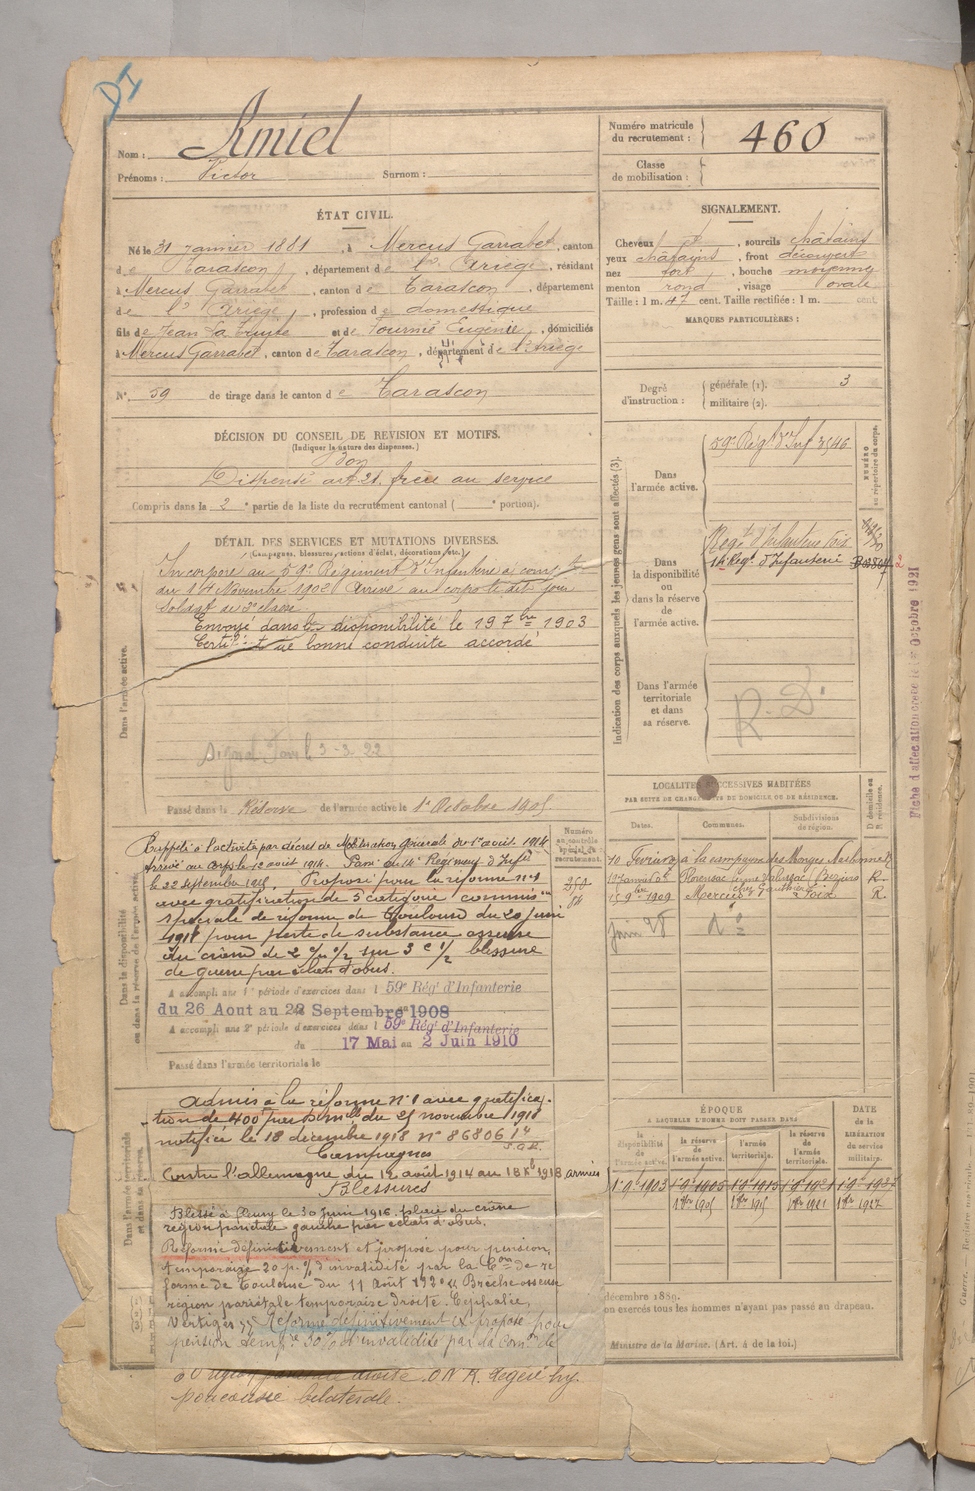 Numéro matricule
du recrutement :
460
Amiel
Nom :
Prénoms : Victor Surnom :
Classe
de mobilisation :
ÉTAT CIVIL.
Né le 31 Janvier 1881, à Mercus Garrabet, canton
de Tarascon, département de l'Ariège, résidant
à Mercus Garrabet, canton de Tarascon, département
de l'Ariège, profession de domestique
fils de Jean et de Fournié Eugénie, domiciliés
à Mercus Garrabet, canton de Tarascon, département de l'Ariège
N° 59 de tirage dans le canton de Tarascon
DÉCISION DU CONSEIL DE REVISION ET MOTIFS.
(Indiquer la nature des dispenses.)
Bon
Dispensé art. 21. frère au service
Compris dans la 2e partie de la liste du recrutement cantonal ( portion).
DÉTAIL DES SERVICES ET MUTATIONS DIVERSES.
(Campagnes, blessures, actions d'éclat, décorations, etc.)
Dans l'armée active.
Incorporé au 59e Régiment d'Infanterie à compter
du 14 Novembre 1902 Arrivé au corps le dit jour
Soldat de 2e classe.
Envoyé dans la disponibilité le 19 7bre 1903
Certificat de bonne conduite accordé
3-3-22
Passé dans la Réserve de l'armée active le 1er Octobre 1905
Numéro
au contrôle
spécial du
recrutement.
Dans la disponibilité
ou dans la réserve de l'armée active.
Rappelé à l'activité par décret de Mobilisation générale du 1er août 1914
Arrivé au Corps le 12 août 1914. Passé au 14e Régiment d'Infie
le 22 septembre 1915. Proposé pour la réforme n°1
avec gratification de 5 catégorie commison
spéciale de réforme de Toulouse du 20 juin
1918 pour perte de substance osseuse
du crâne de 2 c/m 1/2 sur 3 c 1/2 blessure
de guerre par éclats d'obus.
A accompli une 1re période d'exercices dans l 59e Rég' d'Infanterie
du 26 Aout au 22 Septembre 1908
A accompli une 2e période d'exercices dans l 59e Rég' d'Infanterie
du 17 Mai au 2 Juin 1910
Passé dans l'armée territoriale le
Dans l'armée territoriale
et dans sa réserve.
Admis à la réforme n°1 avec gratifica-
tion de 400f par D. Mielle du 25 novembre 1918
notifiée le 18 décembre 1918 n° 86806
Campagnes
Contre l'allemagne du 12 août 1914 au 18 Xbre 1918 armées
Blessures
Blessé à le 30 juin 1916. plaie du crâne
région pariétale gauche par éclats d'obus.
Réformé définitivement et proposé pour pension,
temporaire 20 p. % d'invalidité par la Con de ré-
forme de Toulouse du 11 Août 192 Brèche osseuse
région pariétale temporaire droite. Céphalée,
Vertiges Réformé définitivement et proposé pour
pension tempre 30% d'invalidité par la Comon de
région pariétale droite. O.N.R. légère hy-
poacousie bilatérale.
SIGNALEMENT.
Cheveux et, sourcils châtains
yeux châtains, front découvert
nez fort, bouche moyenne
menton rond, visage ovale
Taille : 1 m. 47 cent. Taille rectifiée : 1 m. cent.
MARQUES PARTICULIÈRES :
Degré
d'instruction :
générale (1). 3
militaire (2).
Indication des corps auxquels les jeunes gens sont affectés (3).
NUMÉRO
au répertoire du corps.
Dans
l'armée active.
59e Régt d'Inf 3546
Dans
la disponibilité
ou
dans la réserve
de
l'armée active.
Régt d'Infanterie Foix
14e Régt d'Infanterie
Dans l'armée
territoriale
et dans
sa réserve.
R. D.
Fiche d'affectation créée le 1er Octobre 1921
LOCALITÉS SUCCESSIVES HABITÉES
PAR SUITE DE CHANGEMENTS DE DOMICILE OU DE RÉSIDENCE.
Dates. Communes. Subdivisions
de région.
D domicile ou
R résidence.
à la campagne des Monges Narbonne
Florensac Béziers R.
15 9bre 1909 Mercus Foix R.
Juin 28
ÉPOQUE
À LAQUELLE L'HOMME DOIT PASSER DANS
la
disponibilité
de l'armée active.
la réserve
de
l'armée active.
l'armée
territoriale.
la réserve
de
l'armée
territoriale.
DATE
de la
LIBÉRATION
du service
militaire.
1 9 1903
décembre 1889.
on exercés tous les hommes n'ayant pas passé au drapeau.
Ministre de la Marine. (Art. 4 de la loi.)